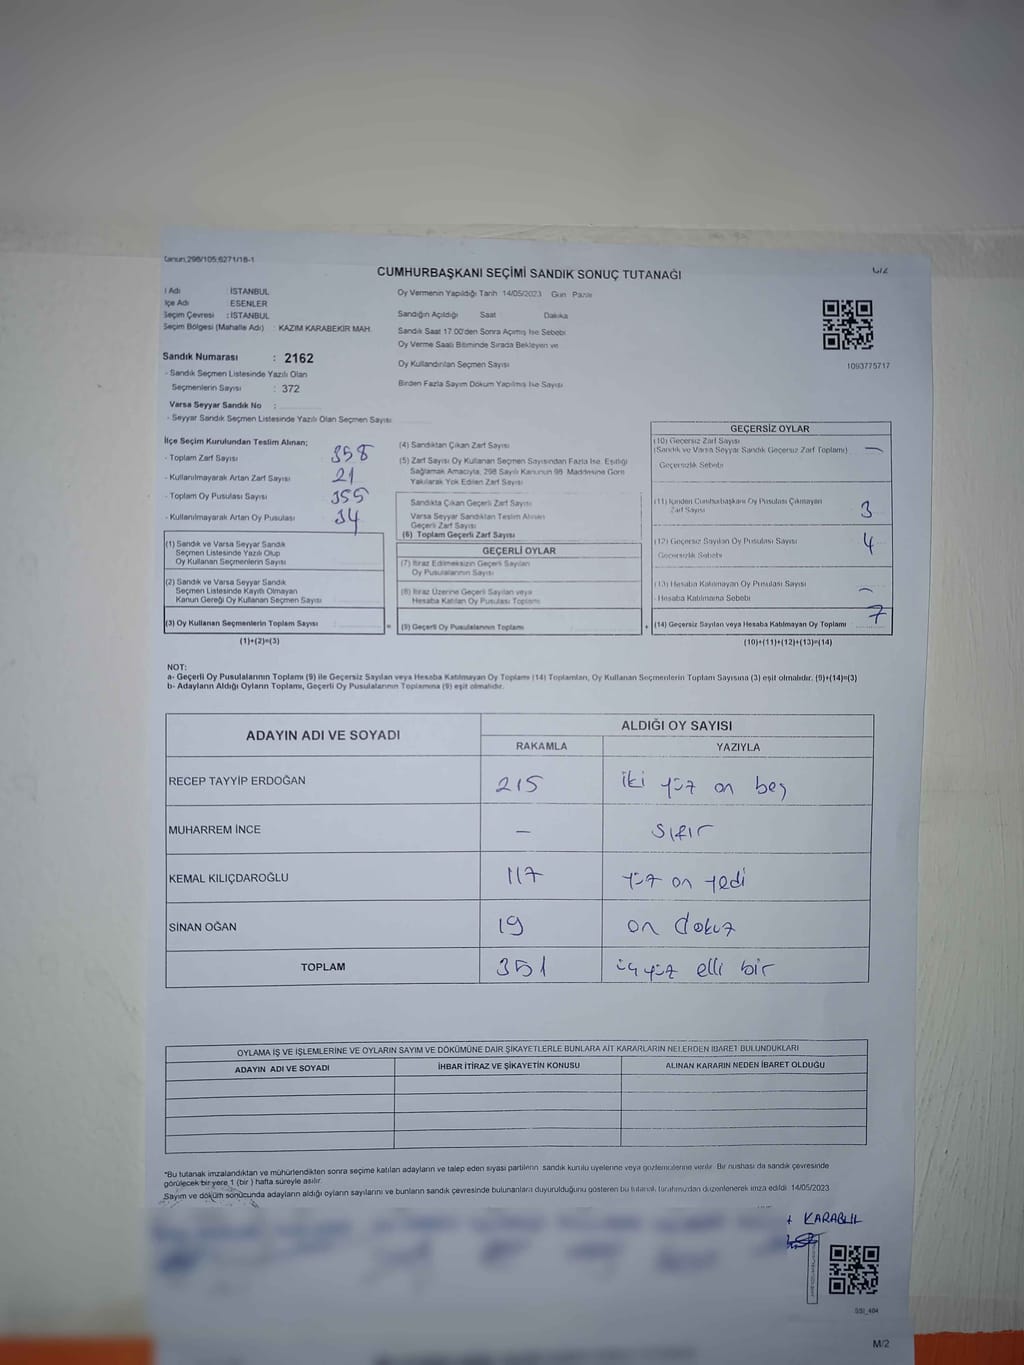 Kanun;298/105;6271/18-1
CUMHURBAŞKANI SEÇİMİ SANDIK SONUÇ TUTANAĞI
İl Adı : İSTANBUL
İlçe Adı : ESENLER
Seçim Çevresi : İSTANBUL
Seçim Bölgesi (Mahalle Adı) : KAZIM KARABEKİR MAH.
Sandık Numarası : 2162
- Sandık Seçmen Listesinde Yazılı Olan
Seçmenlerin Sayısı : 372
Varsa Seyyar Sandık No :
- Seyyar Sandık Seçmen Listesinde Yazılı Olan Seçmen Sayısı
Oy Vermenin Yapıldığı Tarih 14/05/2023 Gün Pazar
Sandığın Açıldığı Saat Dakika
Sandık Saat 17.00'den Sonra Açılmış İse Sebebi
Oy Verme Saati Bitiminde Sırada Bekleyen ve
Oy Kullandırılan Seçmen Sayısı
Birden Fazla Sayım Döküm Yapılmış İse Sayısı
1093775717
İlçe Seçim Kurulundan Teslim Alınan;
- Toplam Zarf Sayısı 358
- Kullanılmayarak Artan Zarf Sayısı 21
- Toplam Oy Pusulası Sayısı 355
- Kullanılmayarak Artan Oy Pusulası 34
(1) Sandık ve Varsa Seyyar Sandık
Seçmen Listesinde Yazılı Olup
Oy Kullanan Seçmenlerin Sayısı
(2) Sandık ve Varsa Seyyar Sandık
Seçmen Listesinde Kayıtlı Olmayan
Kanun Gereği Oy Kullanan Seçmen Sayısı
(3) Oy Kullanan Seçmenlerin Toplam Sayısı
(1)+(2)=(3)
(4) Sandıktan Çıkan Zarf Sayısı
(5) Zarf Sayısı Oy Kullanan Seçmen Sayısından Fazla İse, Eşitliği
Sağlamak Amacıyla, 298 Sayılı Kanunun 98. Maddesine Göre
Yakılarak Yok Edilen Zarf Sayısı
Sandıkta Çıkan Geçerli Zarf Sayısı
Varsa Seyyar Sandıktan Teslim Alınan
Geçerli Zarf Sayısı
(6) Toplam Geçerli Zarf Sayısı
GEÇERLİ OYLAR
(7) İtiraz Edilmeksizin Geçerli Sayılan
Oy Pusulalarının Sayısı
(8) İtiraz Üzerine Geçerli Sayılan veya
Hesaba Katılan Oy Pusulası Toplamı
(9) Geçerli Oy Pusulalarının Toplamı
GEÇERSİZ OYLAR
(10) Geçersiz Zarf Sayısı
(Sandık ve Varsa Seyyar Sandık Geçersiz Zarf Toplamı) —
Geçersizlik Sebebi
(11) İçinden Cumhurbaşkanı Oy Pusulası Çıkmayan
Zarf Sayısı 3
(12) Geçersiz Sayılan Oy Pusulası Sayısı 4
Geçersizlik Sebebi
(13) Hesaba Katılmayan Oy Pusulası Sayısı —
- Hesaba Katılmama Sebebi
(14) Geçersiz Sayılan veya Hesaba Katılmayan Oy Toplamı 7
(10)+(11)+(12)+(13)=(14)
NOT:
a- Geçerli Oy Pusulalarının Toplamı (9) ile Geçersiz Sayılan veya Hesaba Katılmayan Oy Toplamı (14) Toplamları, Oy Kullanan Seçmenlerin Toplam Sayısına (3) eşit olmalıdır. (9)+(14)=(3)
b- Adayların Aldığı Oyların Toplamı, Geçerli Oy Pusulalarının Toplamına (9) eşit olmalıdır.
ADAYIN ADI VE SOYADI ALDIĞI OY SAYISI
RAKAMLA YAZIYLA
RECEP TAYYİP ERDOĞAN 215 iki yüz on beş
MUHARREM İNCE — sıfır
KEMAL KILIÇDAROĞLU 117 yüz on yedi
SİNAN OĞAN 19 on dokuz
TOPLAM 351 üç yüz elli bir
OYLAMA İŞ VE İŞLEMLERİNE VE OYLARIN SAYIM VE DÖKÜMÜNE DAİR ŞİKAYETLERLE BUNLARA AİT KARARLARIN NELERDEN İBARET BULUNDUKLARI
ADAYIN ADI VE SOYADI İHBAR İTİRAZ VE ŞİKAYETİN KONUSU ALINAN KARARIN NEDEN İBARET OLDUĞU
*Bu tutanak imzalandıktan ve mühürlendikten sonra seçime katılan adayların ve talep eden siyasi partilerin sandık kurulu üyelerine veya gözlemcilerine verilir. Bir nüshası da sandık çevresinde
görülecek bir yere 1 (bir ) hafta süreyle asılır.
Sayım ve döküm sonucunda adayların aldığı oyların sayılarını ve bunların sandık çevresinde bulunanlara duyurulduğunu gösteren bu tutanak tarafımızdan düzenlenerek imza edildi. 14/05/2023
KARABUL
SSI_404
M/2